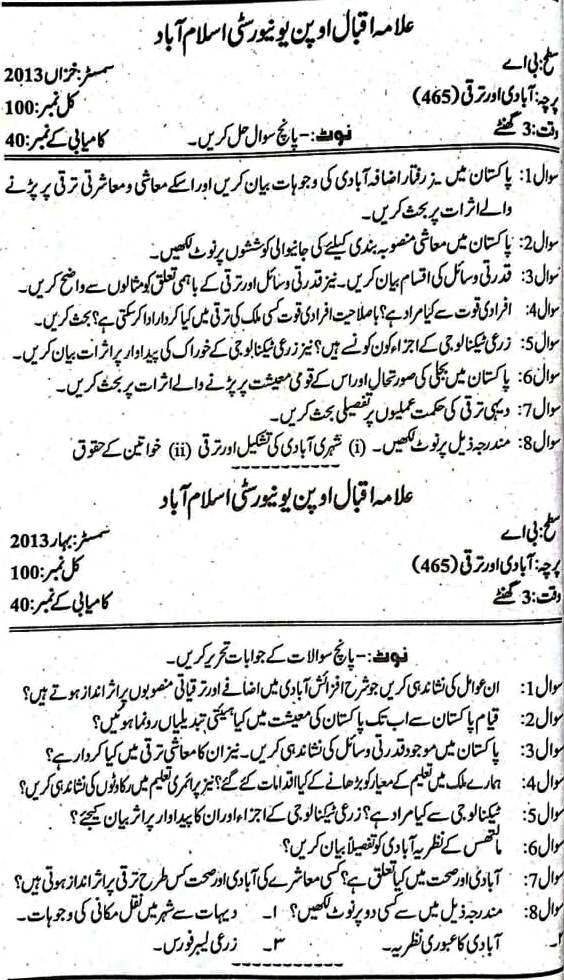 علامہ اقبال اوپن یونیورسٹی اسلام آباد
سطح: بی اے
سمسٹر: خزاں 2013
پرچہ: آبادی اور ترقی (465)
کل نمبر: 100
وقت: 3 گھنٹے
نوٹ:- پانچ سوال حل کریں۔
کامیابی کے نمبر: 40
سوال 1: پاکستان میں رفتار اضافہ آبادی کی وجوہات بیان کریں اور اسکے معاشی و معاشرتی ترقی پر پڑنے
والے اثرات پر بحث کریں۔
سوال 2: پاکستان میں معاشی منصوبہ بندی کیلئے کی جانیوالی کوششوں پر نوٹ لکھیں۔
سوال 3: قدرتی وسائل کی اقسام بیان کریں۔ نیز قدرتی وسائل اور ترقی کے باہمی تعلق کو مثالوں سے واضح کریں۔
سوال 4: افرادی قوت سے کیا مراد ہے؟ باصلاحیت افرادی قوت کسی ملک کی ترقی میں کیا کردار ادا کر سکتی ہے؟ بحث کریں۔
سوال 5: زرعی ٹیکنالوجی کے اجزاء کون کونسے ہیں؟ نیز زرعی ٹیکنالوجی کے خوراک کی پیداوار پر اثرات بیان کریں۔
سوال 6: پاکستان میں بجلی کی صورتحال اور اس کے قومی معیشت پر پڑنے والے اثرات پر بحث کریں۔
سوال 7: دیہی ترقی کی حکمت عملیوں پر تفصیلی بحث کریں۔
سوال 8: مندرجہ ذیل پر نوٹ لکھیں۔ (i) شہری آبادی کی تشکیل اور ترقی (ii) خواتین کے حقوق
علامہ اقبال اوپن یونیورسٹی اسلام آباد
سطح: بی اے
سمسٹر: بہار 2013
پرچہ: آبادی اور ترقی (465)
کل نمبر: 100
وقت: 3 گھنٹے
کامیابی کے نمبر: 40
نوٹ:- پانچ سوالات کے جوابات تحریر کریں۔
سوال 1: ان عوامل کی نشاندہی کریں جو شرح افزائش آبادی میں اضافے اور ترقیاتی منصوبوں پر اثر انداز ہوتے ہیں؟
سوال 2: قیام پاکستان سے اب تک پاکستان کی معیشت میں کیا ہیئتی تبدیلیاں رونما ہوئیں؟
سوال 3: پاکستان میں موجود قدرتی وسائل کی نشاندہی کریں۔ نیز ان کا معاشی ترقی میں کیا کردار ہے؟
سوال 4: ہمارے ملک میں تعلیم کے معیار کو بڑھانے کے کیا اقدامات کئے گئے؟ نیز پرائمری تعلیم میں رکاوٹوں کی نشاندہی کریں؟
سوال 5: ٹیکنالوجی سے کیا مراد ہے؟ زرعی ٹیکنالوجی کے اجزاء اور ان کا پیداوار پر اثر بیان کیجئے؟
سوال 6: مالتھس کے نظریہ آبادی کو تفصیلاً بیان کریں؟
سوال 7: آبادی اور صحت میں کیا تعلق ہے؟ کسی معاشرے کی آبادی اور صحت کس طرح ترقی پر اثر انداز ہوتی ہیں؟
سوال 8: مندرجہ ذیل میں سے کسی دو پر نوٹ لکھیں؟ ۱۔ دیہات سے شہر میں نقل مکانی کی وجوہات۔
۲۔ آبادی کا عبوری نظریہ۔ ۳۔ زرعی لیبر فورس۔